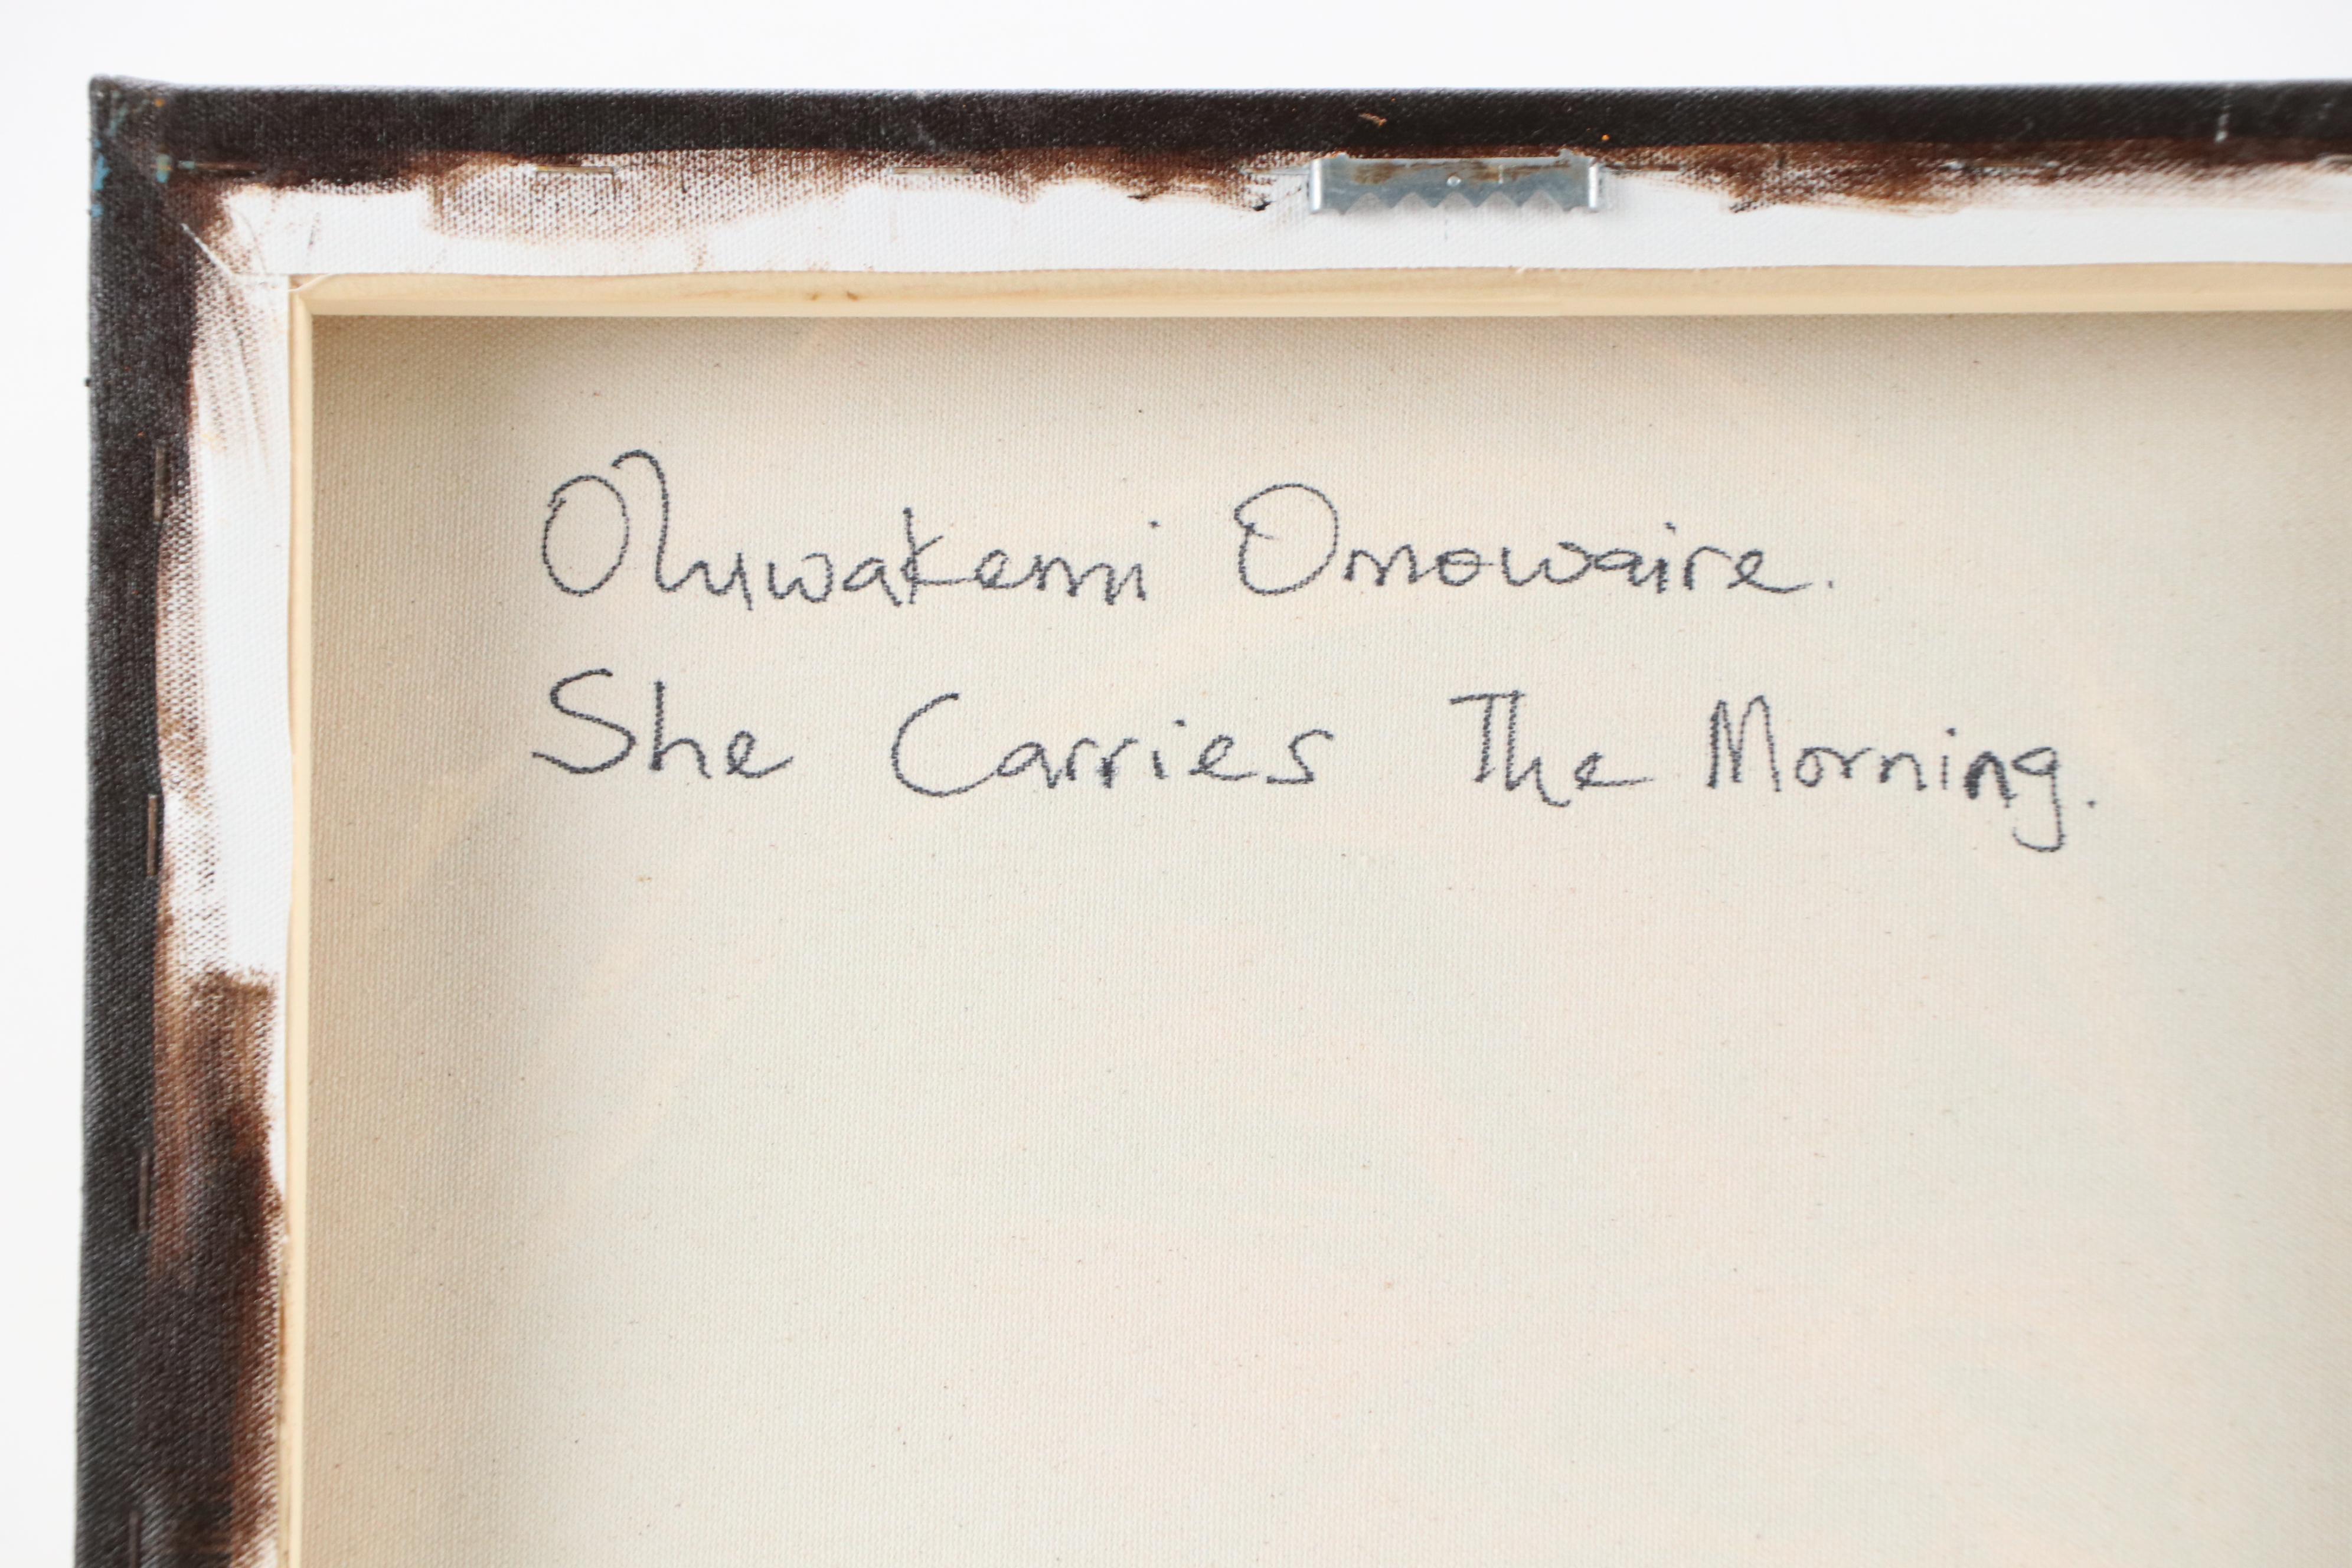 Oluwakemi Omowaire.
She Carries The Morning.